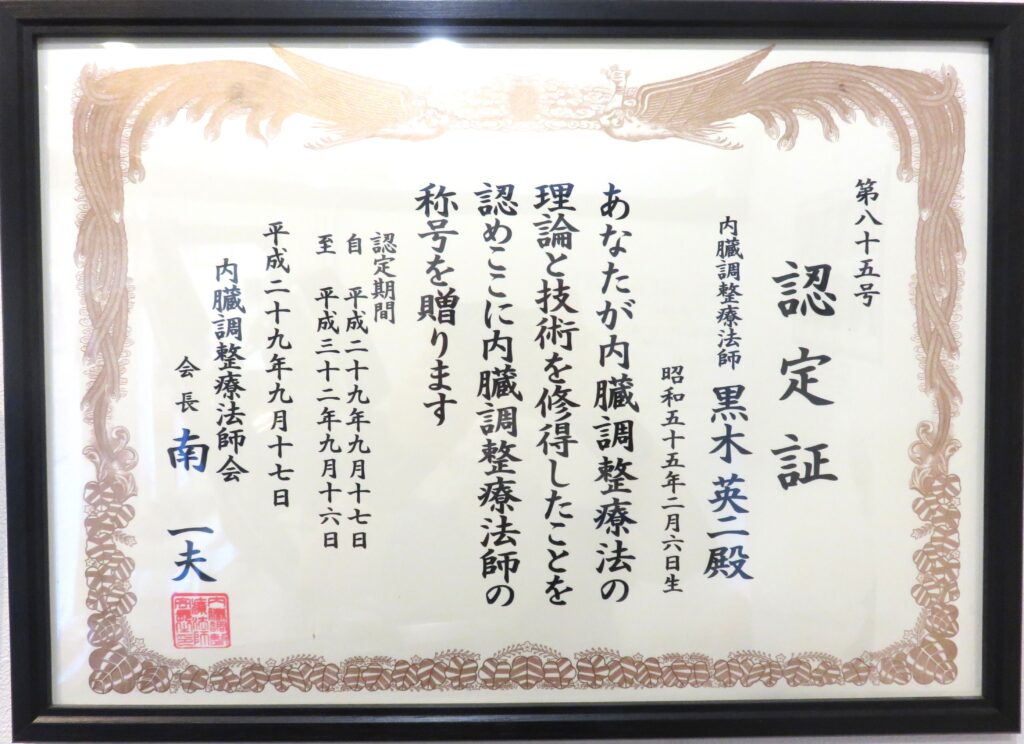 第八十五号
認定証
内臓調整療法師 黒木英二殿
昭和五十五年二月六日生
あなたが内臓調整療法の
理論と技術を修得したことを
認めここに内臓調整療法師の
称号を贈ります
認定期間
自 平成二十九年九月十七日
至 平成三十二年九月十六日
平成二十九年九月十七日
内臓調整療法師会
会長 南 一夫